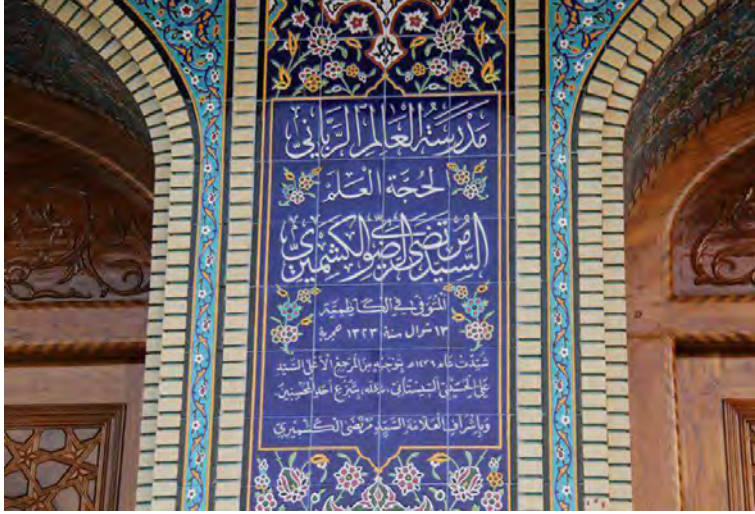 مَدْرَسَةُ العَالِمِ الرَّبَّانِي
الحُجَّةِ العَلَمِ
السَّيِّدِ مُرْتَضَى الرَّضَوِي الكَشْمِيرِيّ
المُتَوَفَّى فِي الكَاظِمِيَّةِ
١٣ شوال سنة ١٣٢٣ هجرية
شُيِّدَتْ عَامَ ١٤٣٦هـ بِتَوْجِيهٍ مِنَ المَرْجِعِ الأَعْلَى السَّيِّدِ
عَلِي الحُسَيْنِي السِّيسْتَانِي بِتَبَرُّعِ أَحَدِ المُحْسِنِينَ
وَبِإِشْرَافِ العَلَّامَةِ السَّيِّدِ مُرْتَضَى الكَشْمِيرِي